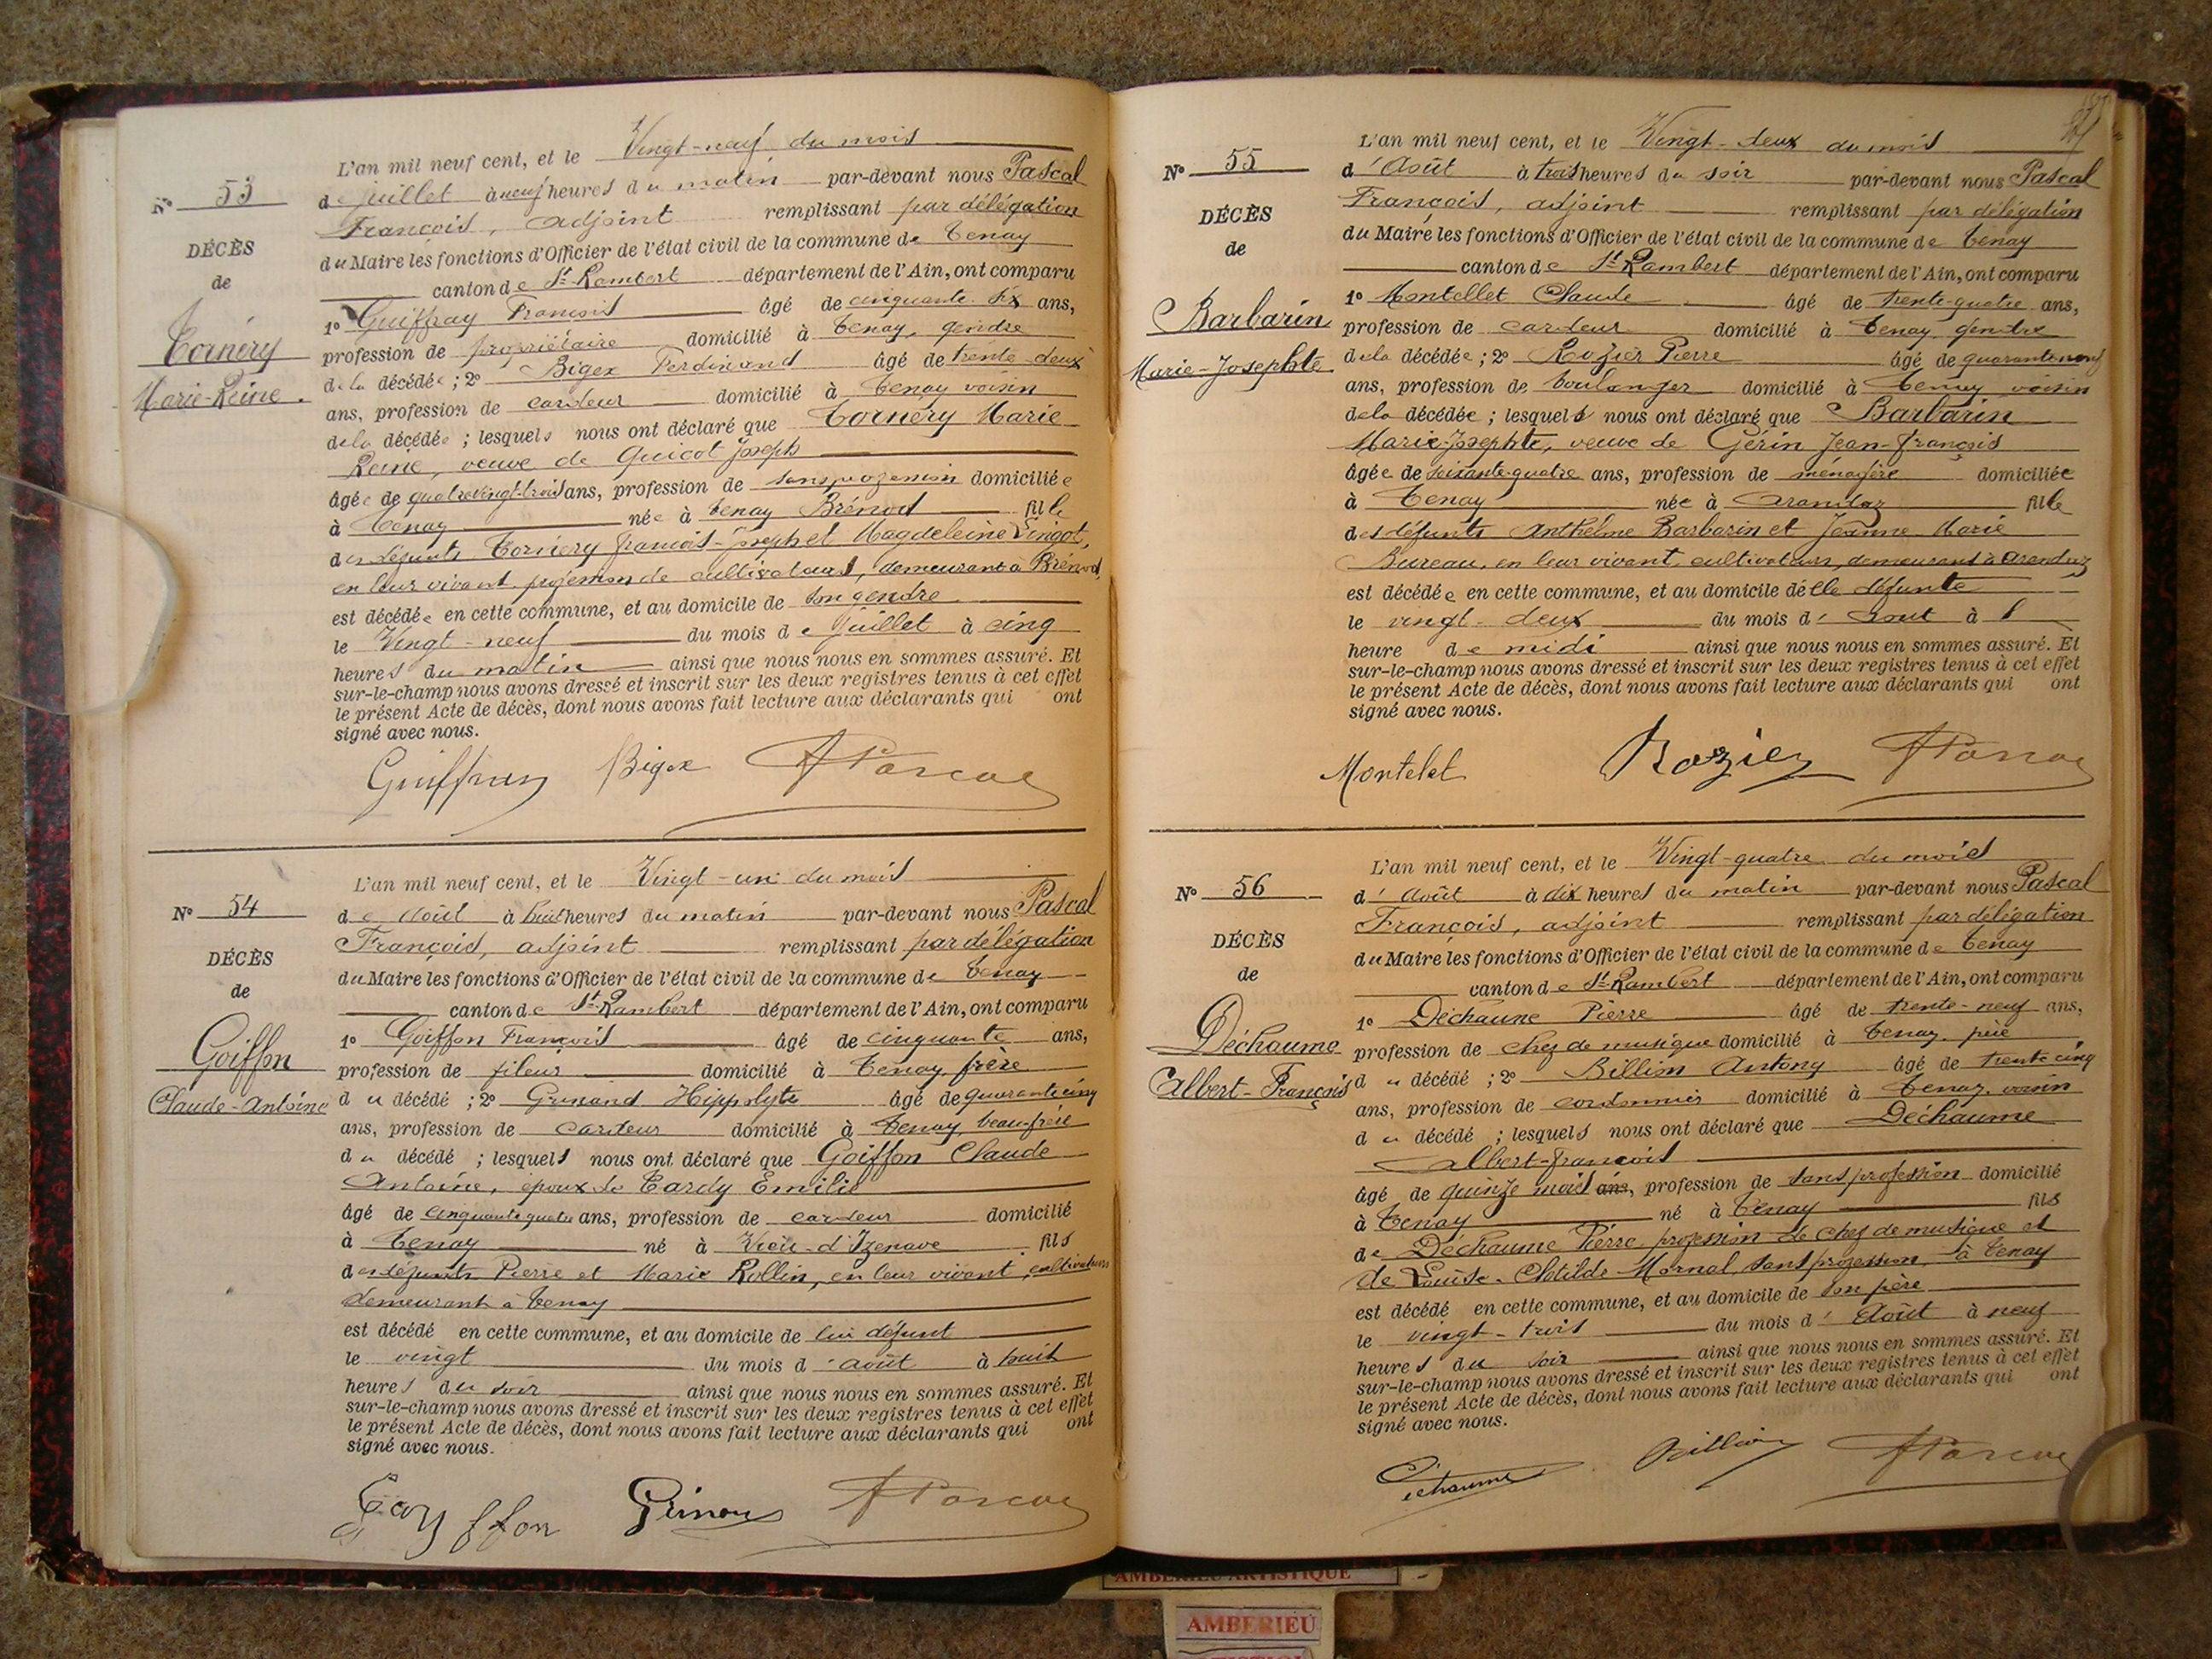 N° 53
DÉCÈS
de
Tornéry
Marie-Reine.
L'an mil neuf cent, et le Vingt-neuf du mois
de Juillet à neuf heures du matin par-devant nous Pascal
François, adjoint remplissant par délégation
du Maire les fonctions d'Officier de l'état civil de la commune de Tenay
canton de St-Rambert département de l'Ain, ont comparu
1° Guiffray François âgé de cinquante-six ans,
profession de propriétaire domicilié à Tenay, gendre
de la décédée ; 2° Bigex Ferdinand âgé de trente-deux
ans, profession de cardeur domicilié à Tenay voisin
de la décédée ; lesquels nous ont déclaré que Tornéry Marie
Reine, veuve de Guicot Joseph
âgée de quatrevingt-trois ans, profession de sans profession domiciliée
à Tenay née à Tenay Brénod fille
des défunts Tornéry François-Joseph et Magdeleine Lingot,
en leur vivant profession de cultivateurs, demeurant à Brénod,
est décédée en cette commune, et au domicile de son gendre
le Vingt-neuf du mois de Juillet à cinq
heures du matin ainsi que nous nous en sommes assuré. Et
sur-le-champ nous avons dressé et inscrit sur les deux registres tenus à cet effet
le présent Acte de décès, dont nous avons fait lecture aux déclarants qui ont
signé avec nous.
Guiffray Bigex FPascal
N° 54
DÉCÈS
de
Goiffon
Claude-Antoine
L'an mil neuf cent, et le Vingt-un du mois
de Août à huit heures du matin par-devant nous Pascal
François, adjoint remplissant par délégation
du Maire les fonctions d'Officier de l'état civil de la commune de Tenay
canton de St-Rambert département de l'Ain, ont comparu
1° Goiffon François âgé de cinquante ans,
profession de fileur domicilié à Tenay, frère
du décédé ; 2° Grinand Hippolyte âgé de quarante cinq
ans, profession de cardeur domicilié à Tenay, beau-frère
du décédé ; lesquels nous ont déclaré que Goiffon Claude
Antoine, époux de Tardy Emilie
âgé de cinquante quatre ans, profession de cardeur domicilié
à Tenay né à Vieu-d'Izenave fils
des défunts Pierre et Marie Rollin, en leur vivant, cultivateurs
demeurant à Tenay
est décédé en cette commune, et au domicile de lui défunt
le vingt du mois d'août à huit
heures du soir ainsi que nous nous en sommes assuré. Et
sur-le-champ nous avons dressé et inscrit sur les deux registres tenus à cet effet
le présent Acte de décès, dont nous avons fait lecture aux déclarants qui ont
signé avec nous.
Goyffon Grinand FPascal
N° 55
DÉCÈS
de
Barbarin
Marie-Josephte
L'an mil neuf cent, et le Vingt-deux du mois
d'Août à trois heures du soir par-devant nous Pascal
François, adjoint remplissant par délégation
du Maire les fonctions d'Officier de l'état civil de la commune de Tenay
canton de St-Rambert département de l'Ain, ont comparu
1° Montellet Claude âgé de trente-quatre ans,
profession de cardeur domicilié à Tenay, gendre
de la décédée ; 2° Rozier Pierre âgé de quarante neuf
ans, profession de boulanger domicilié à Tenay voisin
de la décédée ; lesquels nous ont déclaré que Barbarin
Marie-Josephte, veuve de Gérin Jean-François
âgée de soixante-quatre ans, profession de ménagère domiciliée
à Tenay née à Arandaz fille
des défunts Anthelme Barbarin et Jeanne Marie
Bureau, en leur vivant, cultivateurs, demeurant à Arandaz
est décédée en cette commune, et au domicile de elle défunte
le vingt-deux du mois d'Août à 1
heure de midi ainsi que nous nous en sommes assuré. Et
sur-le-champ nous avons dressé et inscrit sur les deux registres tenus à cet effet
le présent Acte de décès, dont nous avons fait lecture aux déclarants qui ont
signé avec nous.
Montelet Rozier FPascal
N° 56
DÉCÈS
de
Déchaume
Albert-François
L'an mil neuf cent, et le Vingt-quatre du mois
d'Août à dix heures du matin par-devant nous Pascal
François, adjoint remplissant par délégation
du Maire les fonctions d'Officier de l'état civil de la commune de Tenay
canton de St-Rambert département de l'Ain, ont comparu
1° Déchaune Pierre âgé de trente-neuf ans,
profession de chef de musique domicilié à Tenay, père
du décédé ; 2° Billion Antony âgé de trente cinq
ans, profession de cordonnier domicilié à Tenay, voisin
du décédé ; lesquels nous ont déclaré que Déchaume
Albert-François
âgé de quinze mois ans, profession de sans profession domicilié
à Tenay né à Tenay fils
de Déchaume Pierre, profession de chef de musique et
de Louise-Clotilde Mornal, sans profession, à Tenay
est décédé en cette commune, et au domicile de son père
le vingt-trois du mois d'Août à neuf
heures du soir ainsi que nous nous en sommes assuré. Et
sur-le-champ nous avons dressé et inscrit sur les deux registres tenus à cet effet
le présent Acte de décès, dont nous avons fait lecture aux déclarants qui ont
signé avec nous.
Déchaume Billion FPascal
AMBERIEU ARTISTIQUE
AMBERIEU